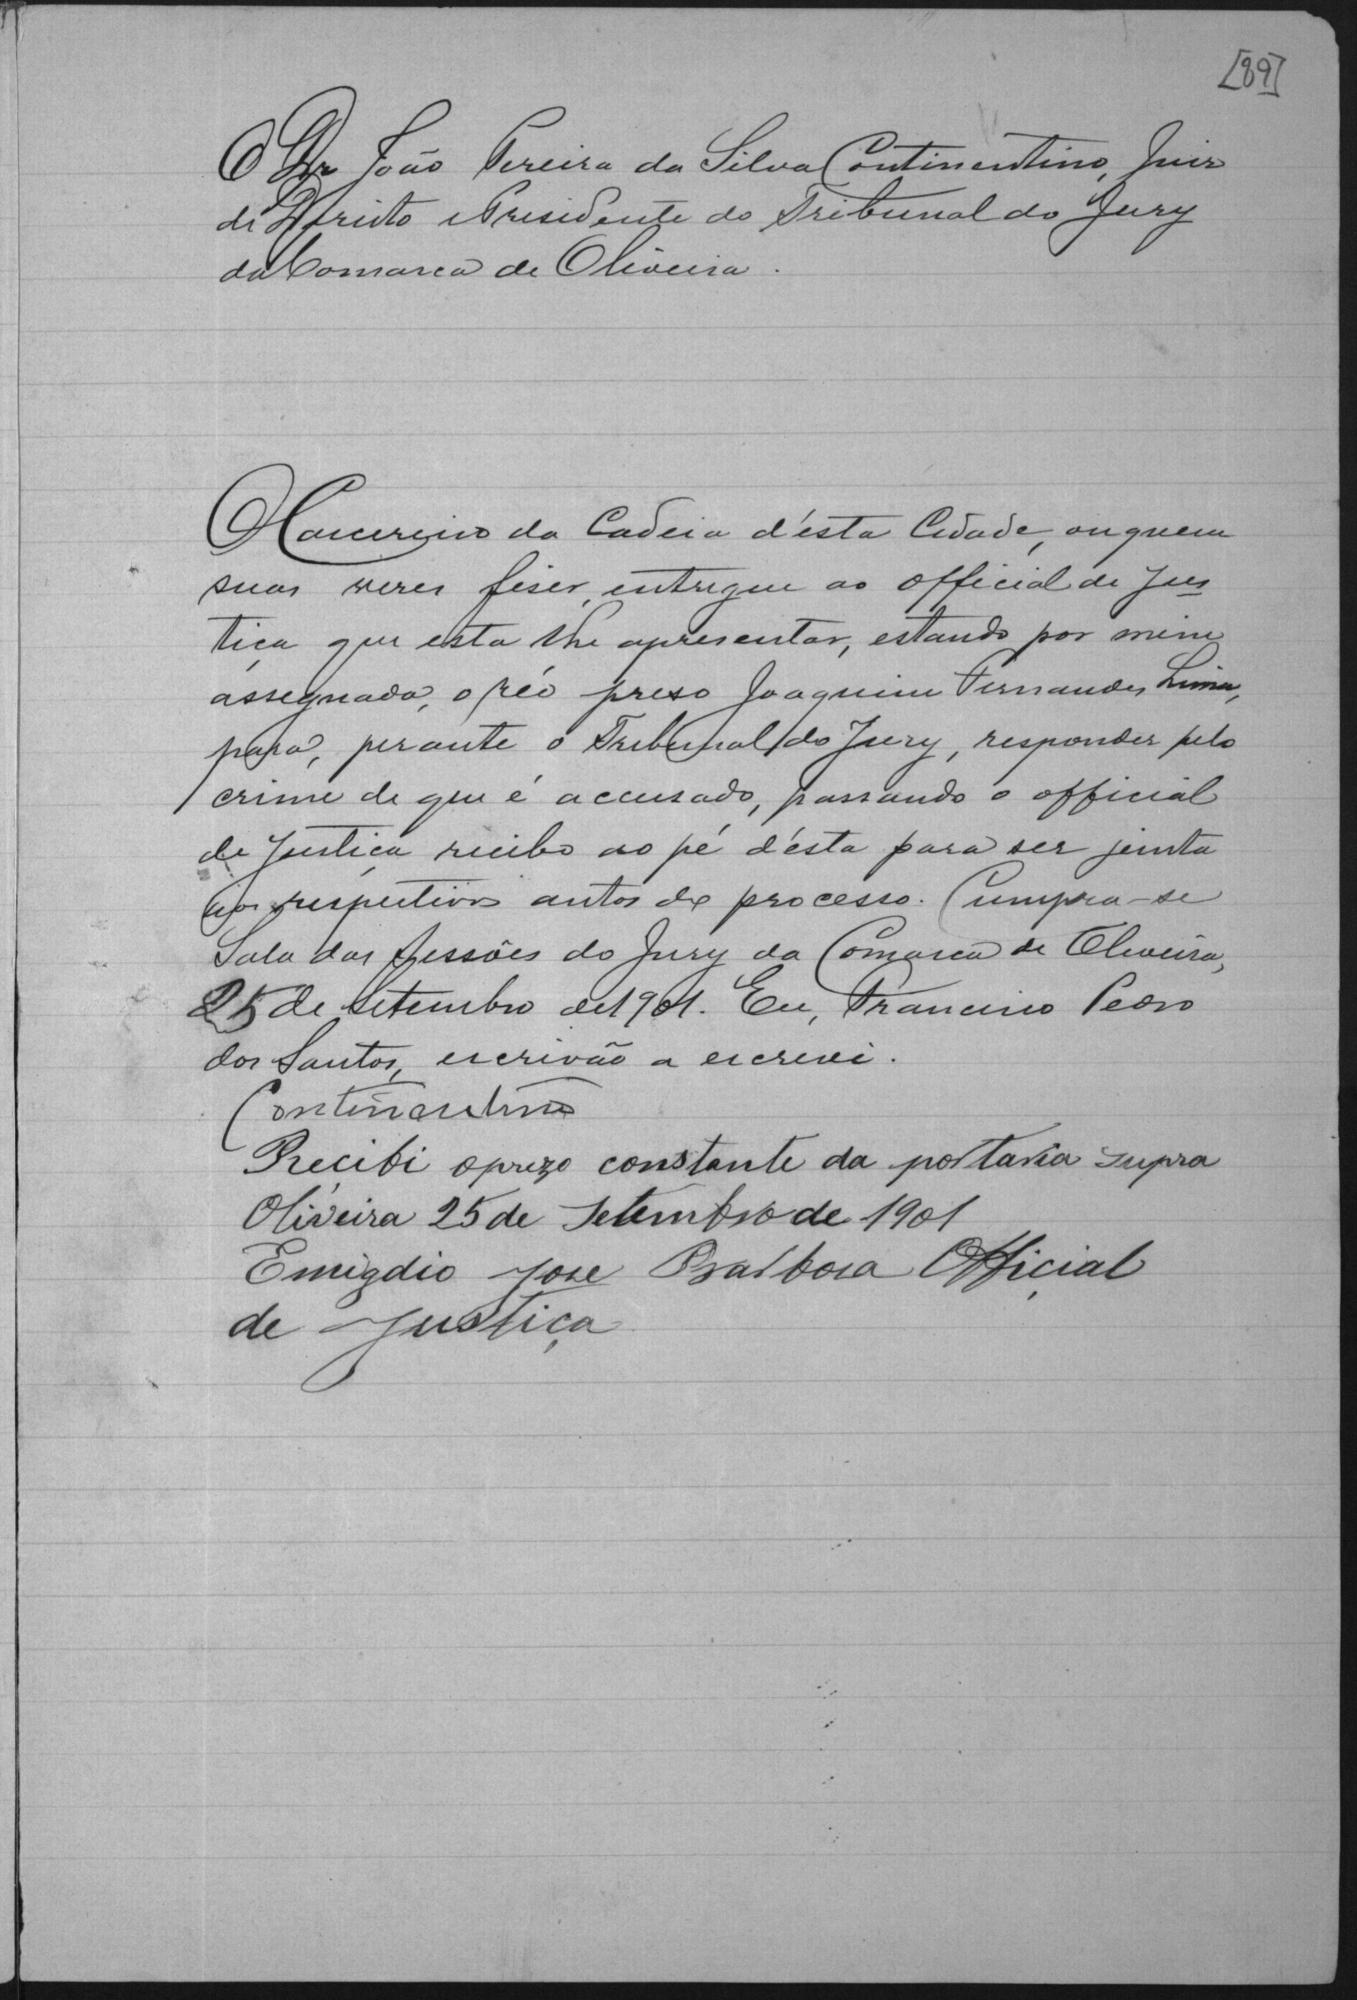 [89]
O Dr João Pereira da Silva Continentino, Juiz
de Direito e Presidente do Tribunal do Jury
da Comarca de Oliveira.
O Carcereiro da Cadeia d'ésta Cidade, ou quem
suas vezes fiser, entregue ao official de Jus
tiça que esta lhe apresentar, estando por mim
assegnada, o réo preso Joaquim Fernandes Lima,
para, perante o Tribunal do Jury, responder pelo
crime de que é accusado, passando o official
de Justiça recibo ao pé d'ésta para ser junta
aos respectivos autos de processo. Cumpra-se
Sala das Sessões do Jury da Comarca de Oliveira,
25 de Setembro de 1901. Eu, Francisco Pedro
dos Santos, escrivão a escrevi.
Continentino
Recibi o prezo constante da portaria supra
Oliveira 25 de Setembro de 1901
Emigdio Jose Barbosa Official
de Justiça